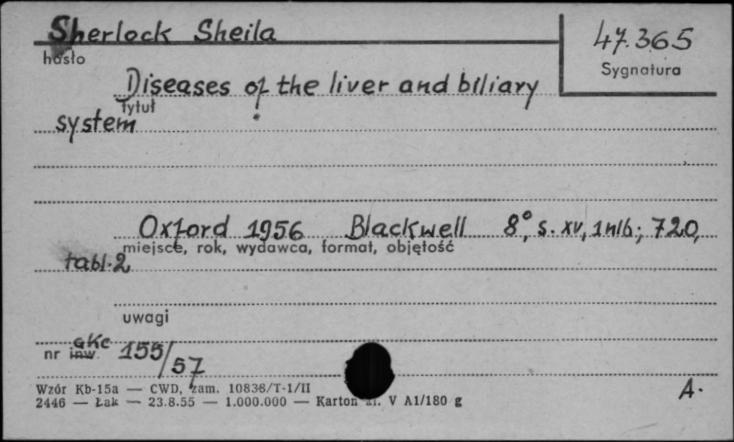 Sherlock Sheila
47.365
hasło
Sygnatura
Diseases of the liver and biliary
Tytuł
system
Oxford 1956 Blackwell 8°, s. XV, 1nlb; 720,
miejsce, rok, wydawca, format, objętość
tabl. 2
uwagi
akc
nr inw. 155/57
A.
Wzór Kb-15a — CWD, zam. 10836/T-1/II
2446 — Łak — 23.8.55 — 1.000.000 — Karton kl. V A1/180 g